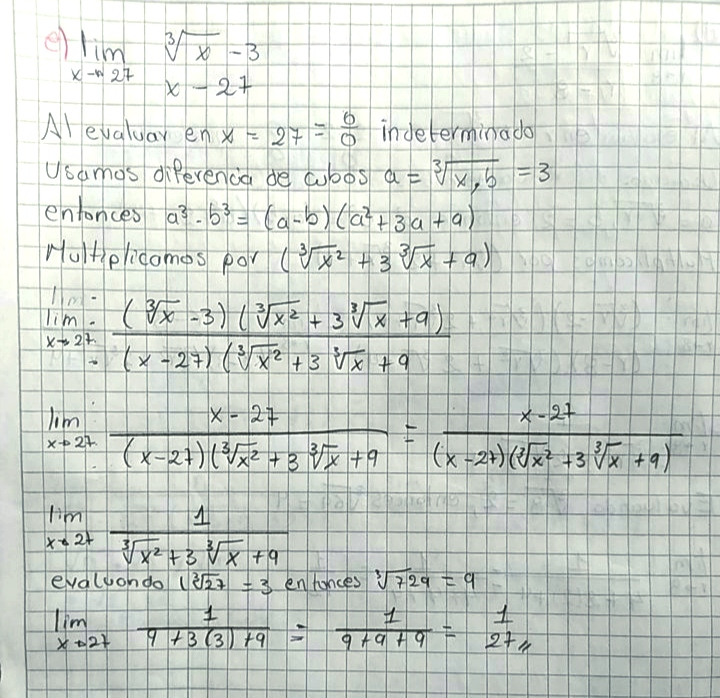 e) lim ∛x - 3
x→27 x - 27
Al evaluar en x = 27 = 0/0 indeterminado
Usamos diferencia de cubos a = ∛x,b = 3
entonces a³-b³ = (a-b)(a²+3a+9)
Multiplicamos por (∛x² + 3∛x + 9)
lim.
lim. (∛x - 3)(∛x² + 3∛x + 9)
x→27 (x - 27)(∛x² + 3∛x + 9
lim x - 27 = x - 27
x→27 (x-27)(∛x² + 3∛x + 9 (x-27)(∛x² + 3∛x + 9)
lim 1
x→27 ∛x² + 3∛x + 9
evaluando (∛27 = 3 entonces ∛729 = 9
lim 1 = 1 = 1
x→27 9 + 3(3) + 9 9+9+9 27,,